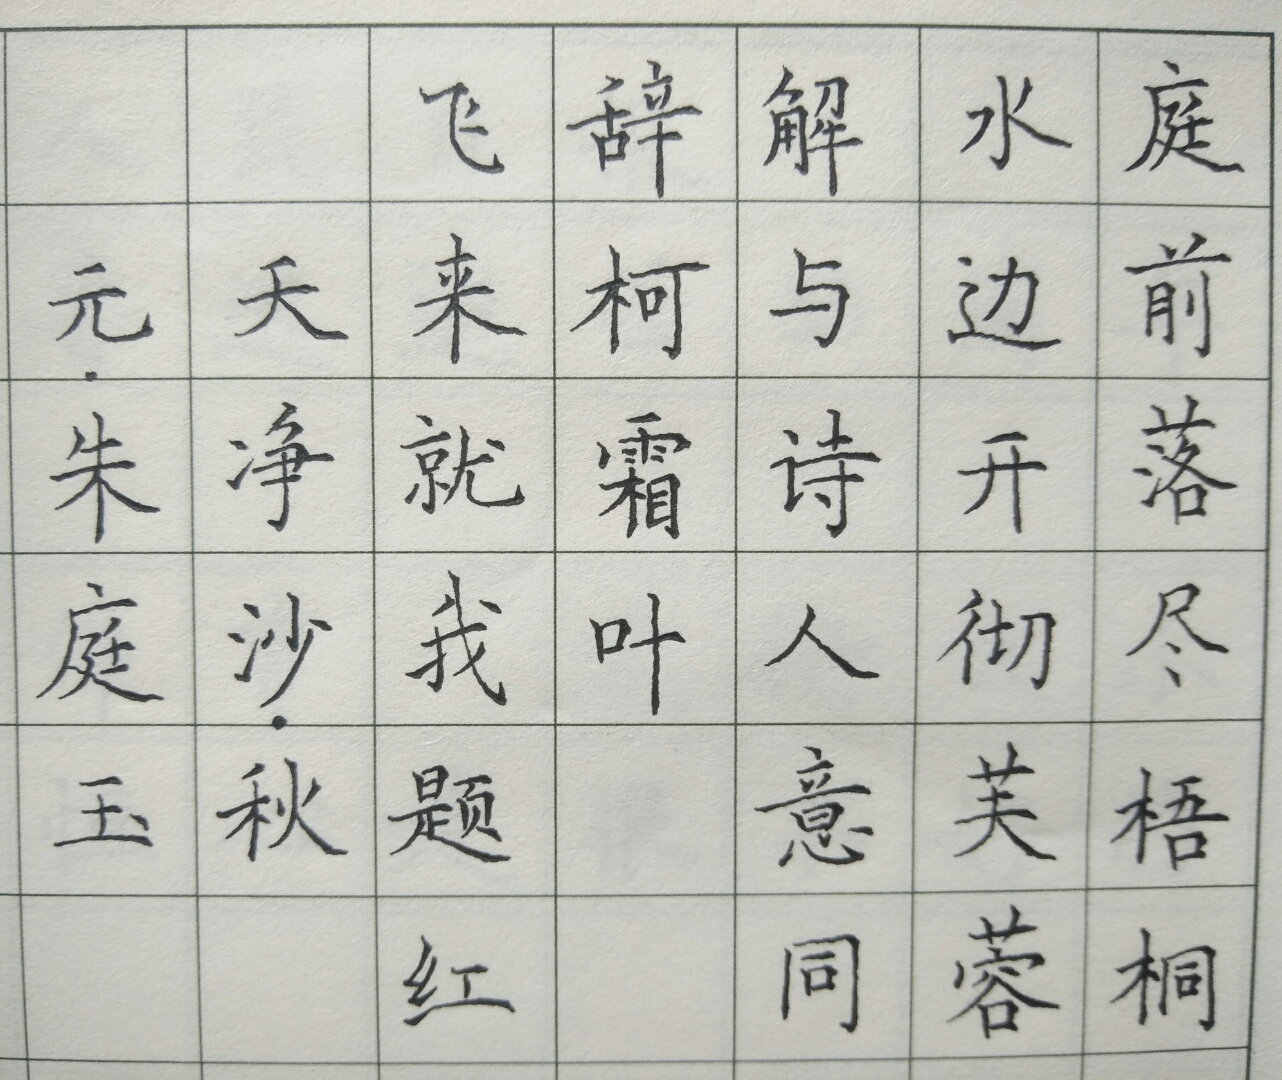 庭前落尽梧桐
水边开彻芙蓉
解与诗人意同
辞柯霜叶
飞来就我题红
天净沙·秋
元·朱庭玉